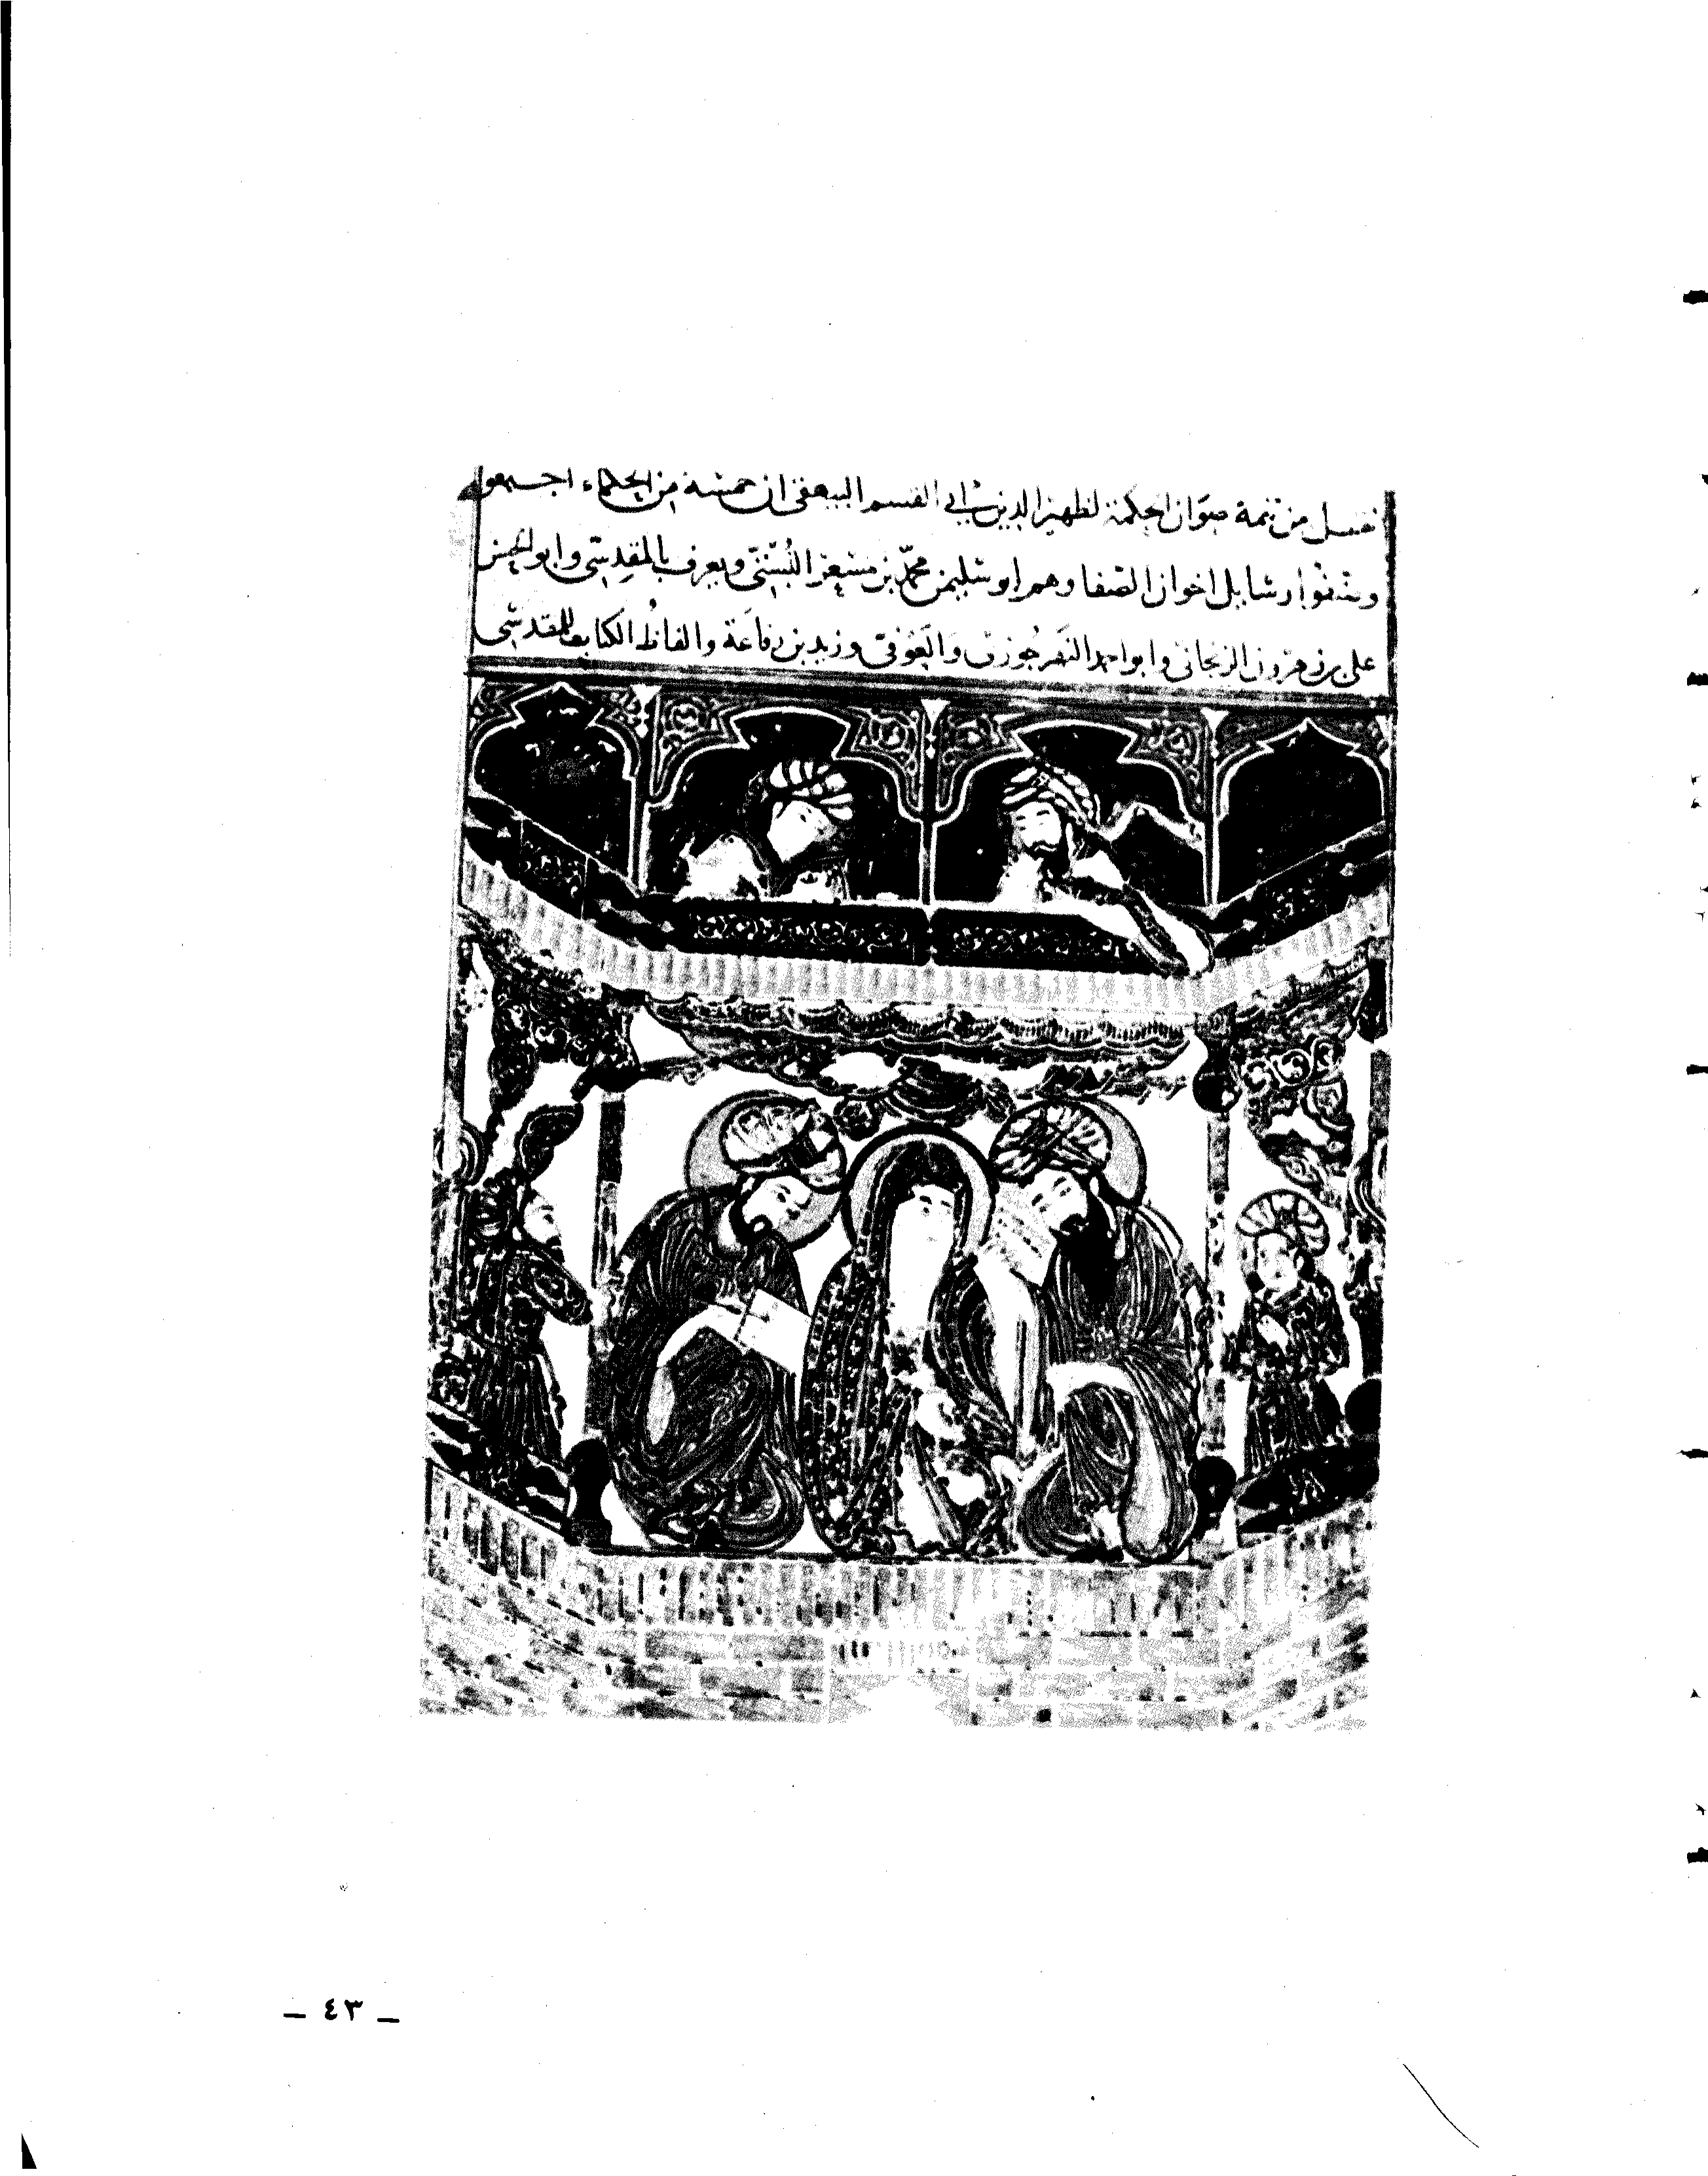 نقل من تتمة صوان الحكمة لظهير الدين بن ابي القسم البيهقي ان خمسة من الحكماء اجتمعوا
وصنفوا رسايل اخوان الصفا وهم ابو سليمن محمّد بن مسعر البُستيّ ويعرف بالمقدِسيّ وابو الحسن
علي بن هرون الزنجاني وابو احمد النهرجُوري وَالعَوفي وزيد بن رفاعَة والفاظُ الكتاب للمقدسي
— ٤٣ —